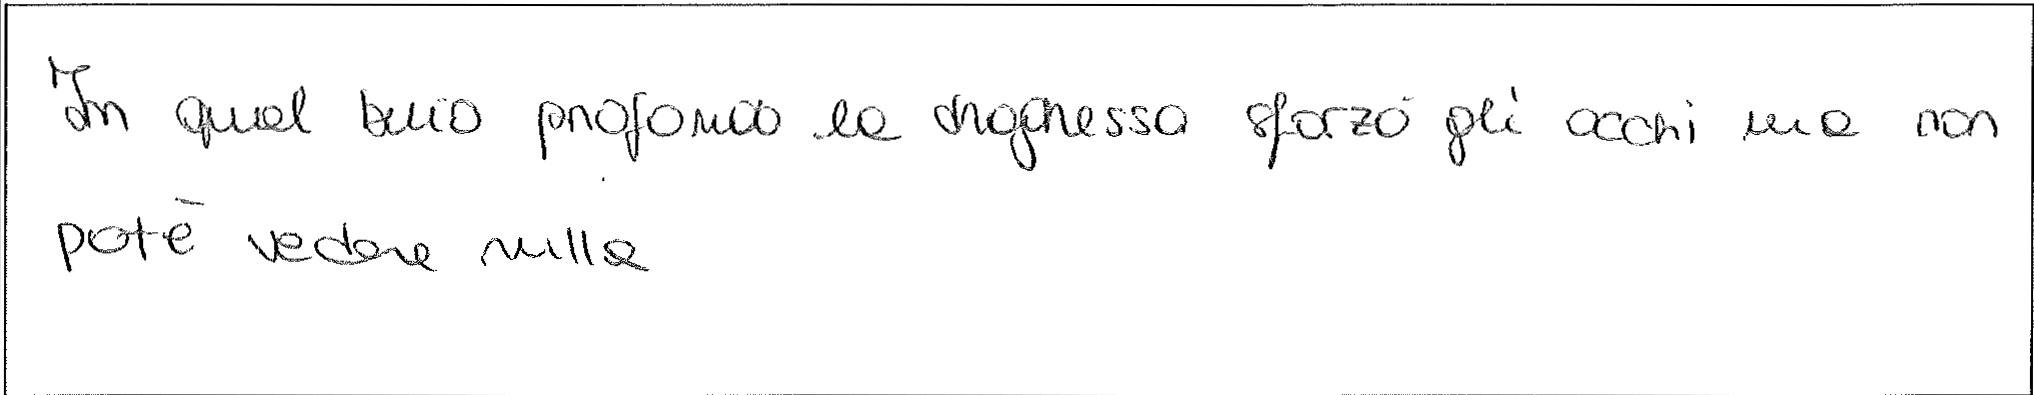 In quel buio profondo la dragonessa sforzò gli occhi ma non
potè vedere nulla